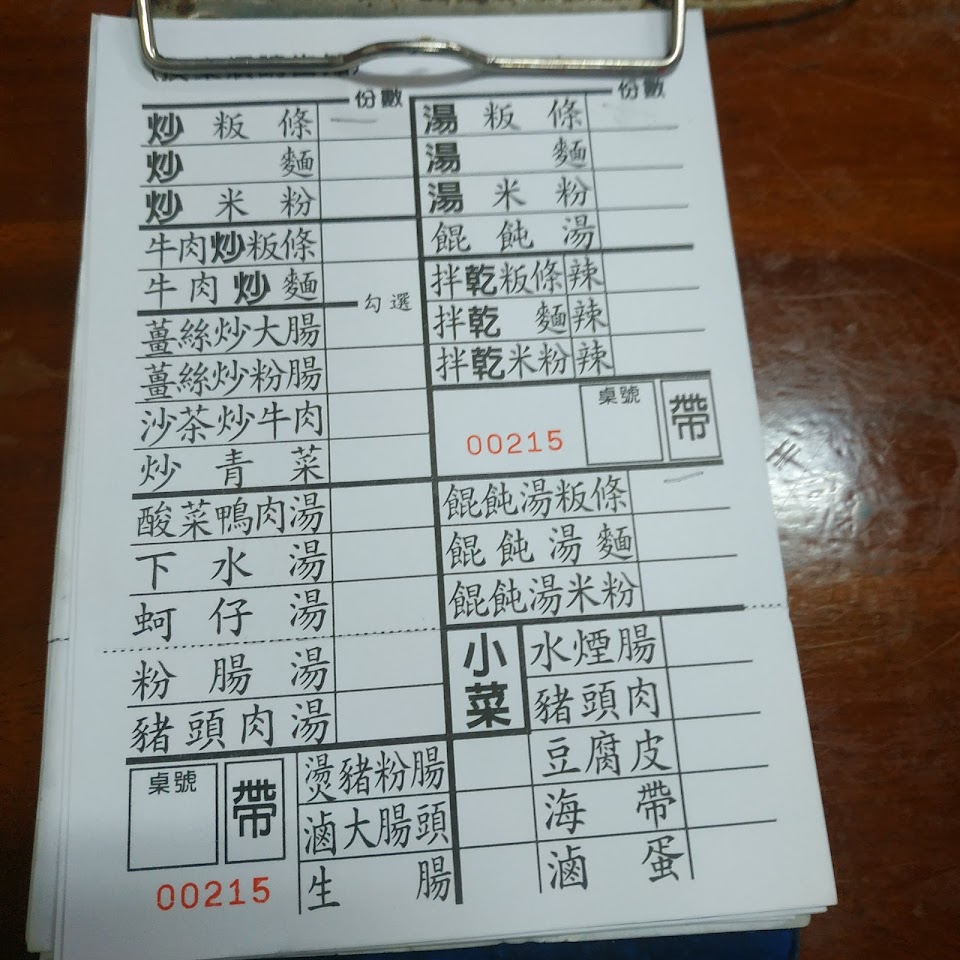 份數
炒粄條
炒麵
炒米粉
牛肉炒粄條
牛肉炒麵
勾選
薑絲炒大腸
薑絲炒粉腸
沙茶炒牛肉
炒青菜
酸菜鴨肉湯
下水湯
蚵仔湯
粉腸湯
豬頭肉湯
桌號
帶
00215
燙豬粉腸
滷大腸頭
生腸
份數
湯粄條
湯麵
湯米粉
餛飩湯
拌乾粄條 辣
拌乾麵 辣
拌乾米粉 辣
00215
桌號
帶
餛飩湯粄條
餛飩湯麵
餛飩湯米粉
小菜
水煙腸
豬頭肉
豆腐皮
海帶
滷蛋